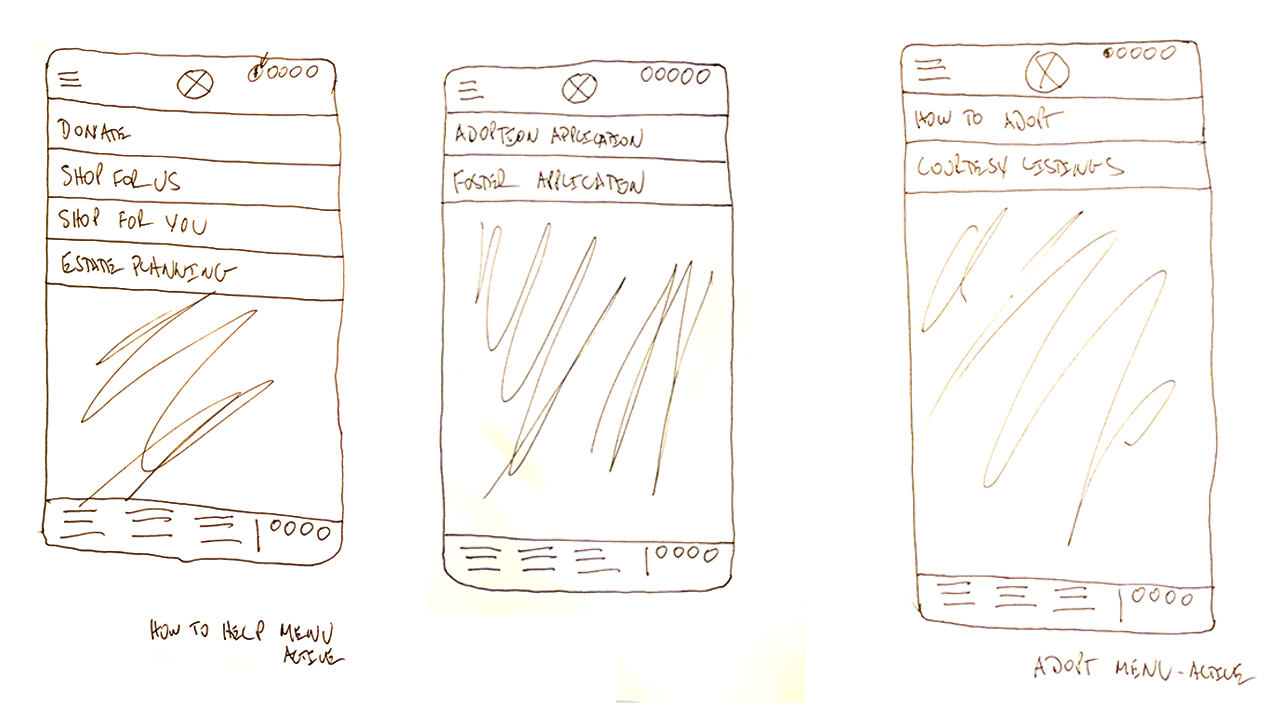 DONATE
SHOP FOR US
SHOP FOR YOU
ESTATE PLANNING
HOW TO HELP MENU
ACTIVE
ADOPTION APPLICATION
FOSTER APPLICATION
HOW TO ADOPT
COURTESY LISTINGS
ADOPT MENU-ACTIVE